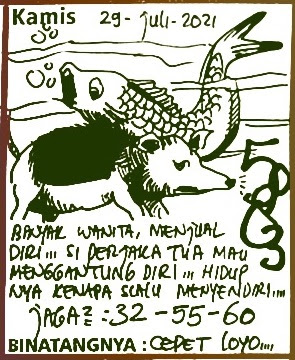 Kamis 29 - juli - 2021
BANYAK WANITA, MENJUAL
DIRI... SI PERJAKA TUA MAU
MENGGANTUNG DIRI... HIDUP
NYA KENAPA SLALU MENYENDIRI...
jAGA2 : 32 - 55 - 60
BINATANGNYA : CEPET LOYO....